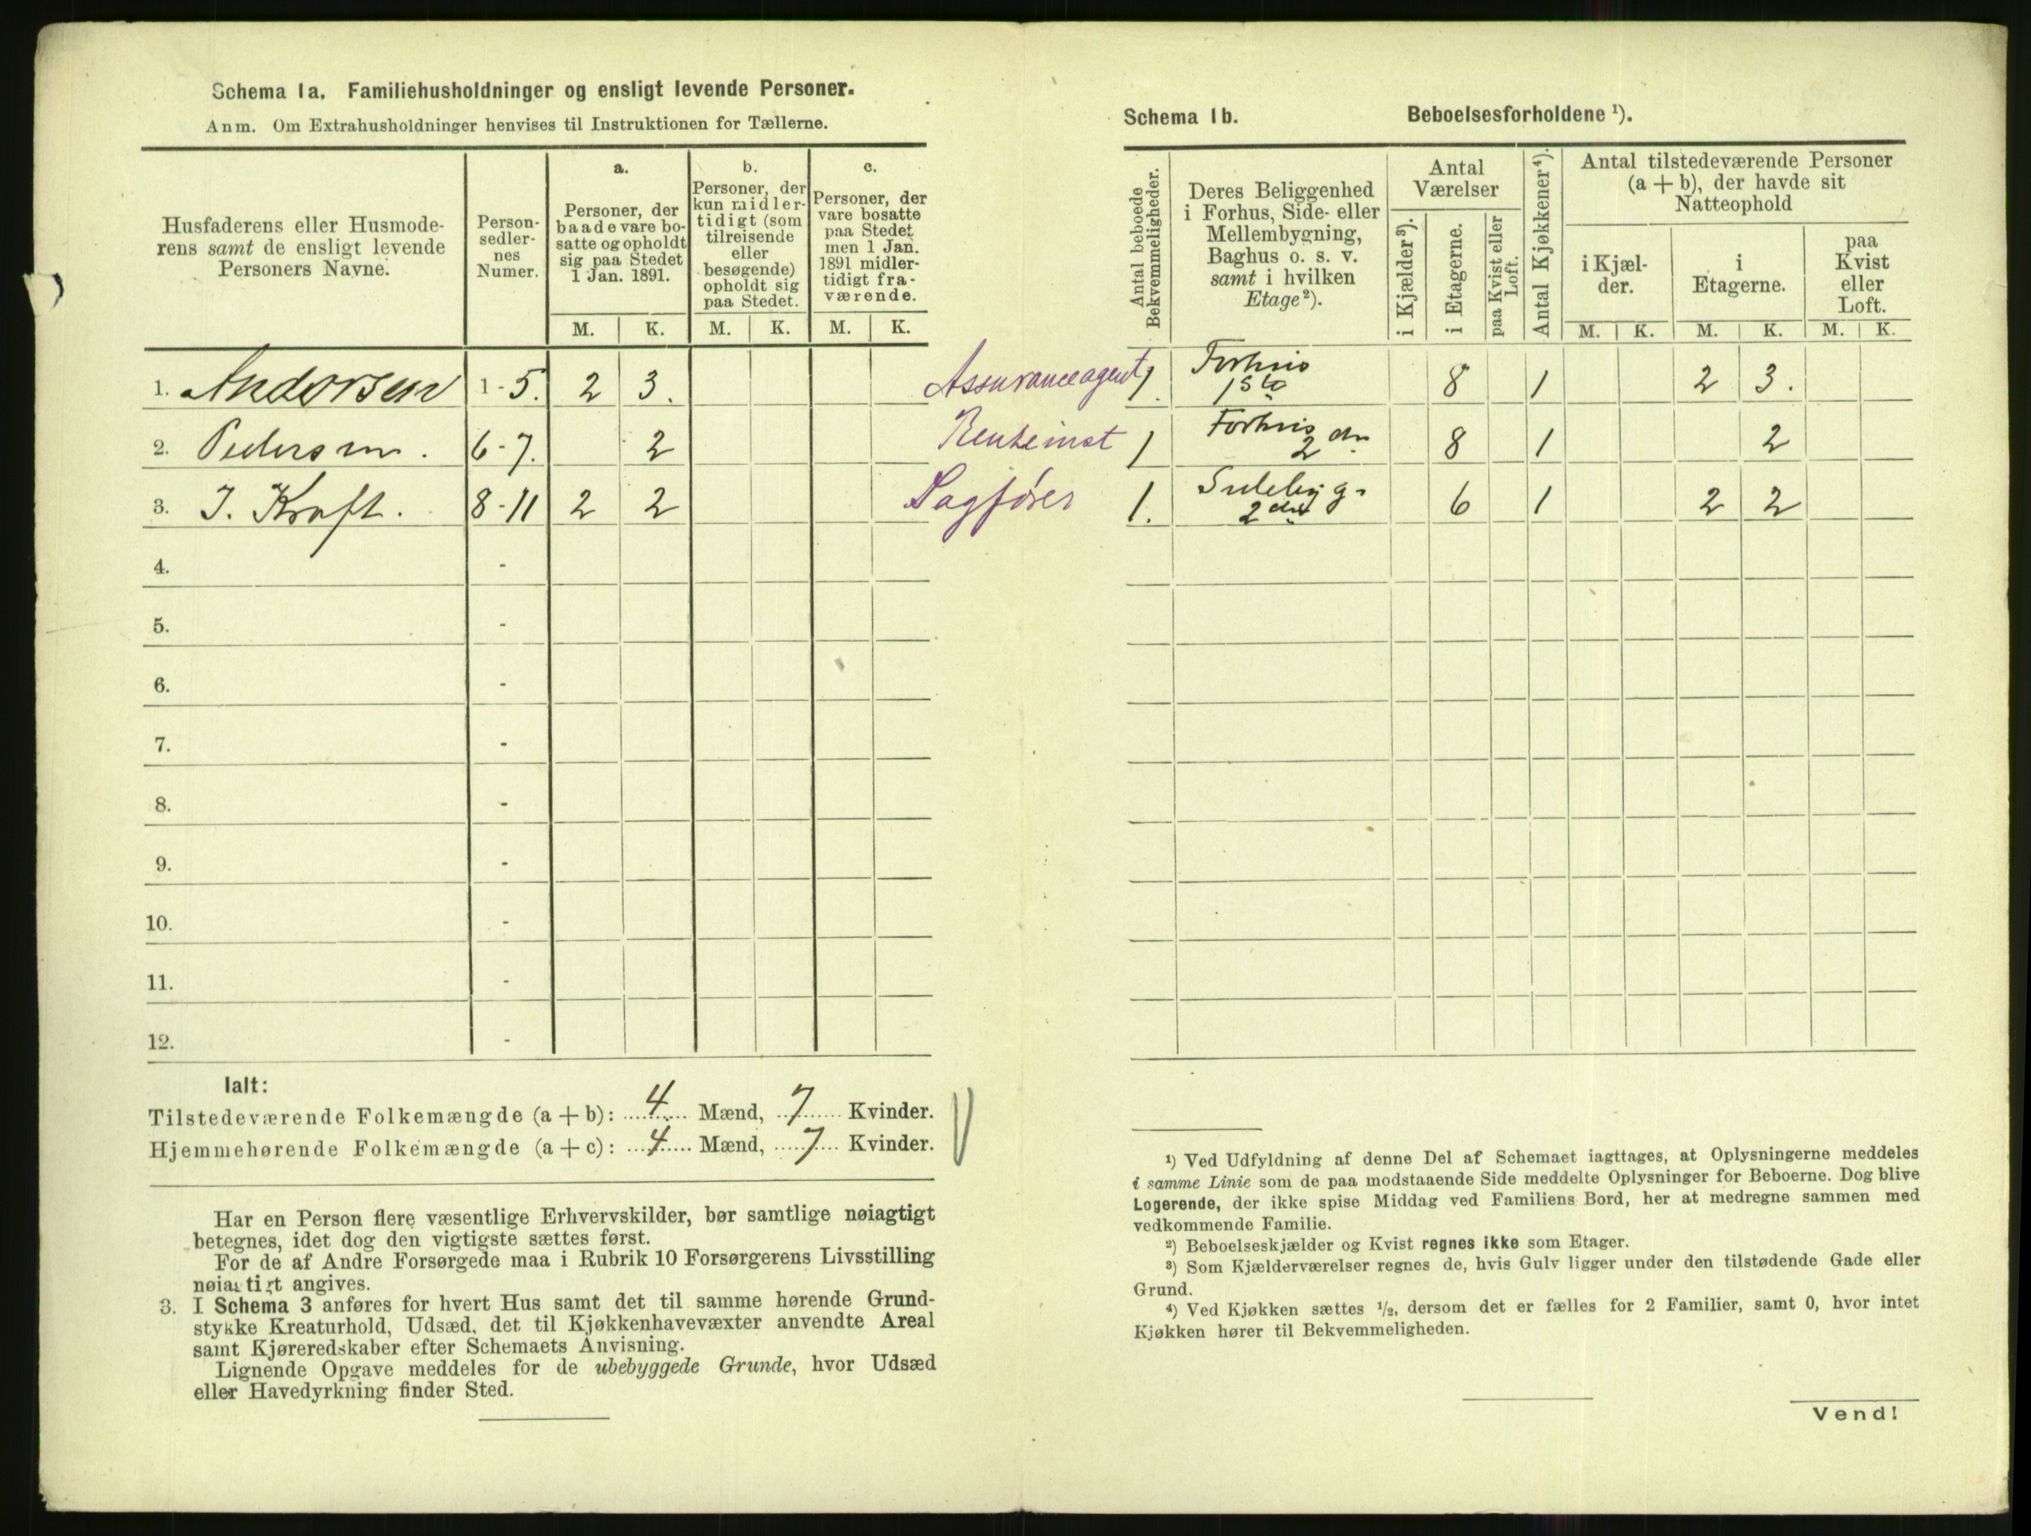 Schema 1a. Familiehusholdninger og ensligt levende Personer.
Anm. Om Extrahusholdninger henvises til Instruktionen for Tællerne.
Husfaderens eller Husmode-
rens samt de ensligt levende
Personers Navne.
Person-
sedler-
nes
Numer.
a.
Personer, der
baade vare bo-
satte og opholdt
sig paa Stedet
1 Jan. 1891.
b.
Personer, der
kun midler-
tidigt (som
tilreisende
eller
besøgende)
opholdt sig
paa Stedet.
c.
Personer, der
vare bosatte
paa Stedet
men 1 Jan.
1891 midler-
tidigt fra-
værende.
M. K. M. K. M. K.
1. Andersen 1-5. 2 3.
2. Pedersen. 6-7. 2
3. J. Kraft. 8-11 2 2
4. -
5. -
6. -
7. -
8. -
9. -
10. -
11. -
12. -
Ialt:
Tilstedeværende Folkemængde (a + b): 4 Mænd, 7 Kvinder.
Hjemmehørende Folkemængde (a + c): 4 Mænd, 7 Kvinder.
Har en Person flere væsentlige Erhvervskilder, bør samtlige nøiagtigt
betegnes, idet dog den vigtigste sættes først.
For de af Andre Forsørgede maa i Rubrik 10 Forsørgerens Livsstilling
nøiagtigt angives.
3. I Schema 3 anføres for hvert Hus samt det til samme hørende Grund-
stykke Kreaturhold, Udsæd, det til Kjøkkenhavevæxter anvendte Areal
samt Kjøreredskaber efter Schemaets Anvisning.
Lignende Opgave meddeles for de ubebyggede Grunde, hvor Udsæd
eller Havedyrkning finder Sted.
Schema 1b. Beboelsesforholdene ¹).
Antal beboede
Bekvemmeligheder.
Deres Beliggenhed
i Forhus, Side- eller
Mellembygning,
Baghus o. s. v.
samt i hvilken
Etage²).
Antal
Værelser
i Kjælder³).
i Etagerne.
paa Kvist eller
Loft.
Antal Kjøkkener⁴).
Antal tilstedeværende Personer
(a + b), der havde sit
Natteophold
i Kjæl-
der.
i
Etagerne.
paa
Kvist
eller
Loft.
M. K. M. K. M. K.
Assuranceagent 1. Forhus 8 1 2 3.
1ste
Renteinst 1 Forhus 8 1 2
2 den
Sagfører 1. Sidebyg. 6 1 2 2
2den
¹) Ved Udfyldning af denne Del af Schemaet iagttages, at Oplysningerne meddeles
i samme Linie som de paa modstaaende Side meddelte Oplysninger for Beboerne. Dog blive
Logerende, der ikke spise Middag ved Familiens Bord, her at medregne sammen med
vedkommende Familie.
²) Beboelseskjælder og Kvist regnes ikke som Etager.
³) Som Kjælderværelser regnes de, hvis Gulv ligger under den tilstødende Gade eller
Grund.
⁴) Ved Kjøkken sættes ½, dersom det er fælles for 2 Familier, samt 0, hvor intet
Kjøkken hører til Bekvemmeligheden.
Vend!